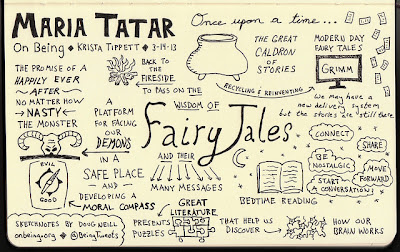 MARIA TATAR
On Being ◆ KRISTA TIPPETT ◆ 3-14-13
Once upon a time...
THE PROMISE OF A
HAPPILY EVER
— AFTER —
NO MATTER HOW
→ NASTY ←
THE MONSTER
BACK TO
THE
FIRESIDE
TO PASS ON THE
WISDOM OF
Fairy Tales
AND THEIR
MANY MESSAGES
THE GREAT
CALDRON
OF
STORIES
RECYCLING & REINVENTING
MODERN DAY
FAIRY TALES
GRIMM
we may have a
new delivery system
but the stories are still there
A
PLATFORM
FOR FACING
OUR
DEMONS
IN A
SAFE PLACE
— AND —
DEVELOPING A
MORAL COMPASS
EVIL
GOOD
CONNECT
SHARE
BE
NOSTALGIC
MOVE
FORWARD
START A
CONVERSATION
BEDTIME READING
GREAT
LITERATURE
PRESENTS
PUZZLES
THAT HELP US
DISCOVER
HOW OUR
BRAIN WORKS
SKETCHNOTES BY DOUG NEILL
onbeing.org ◆ @BeingTweets